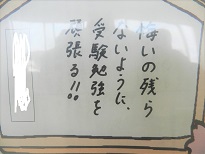 悔いの残ら
ないように、
受験勉強を
頑張る!!